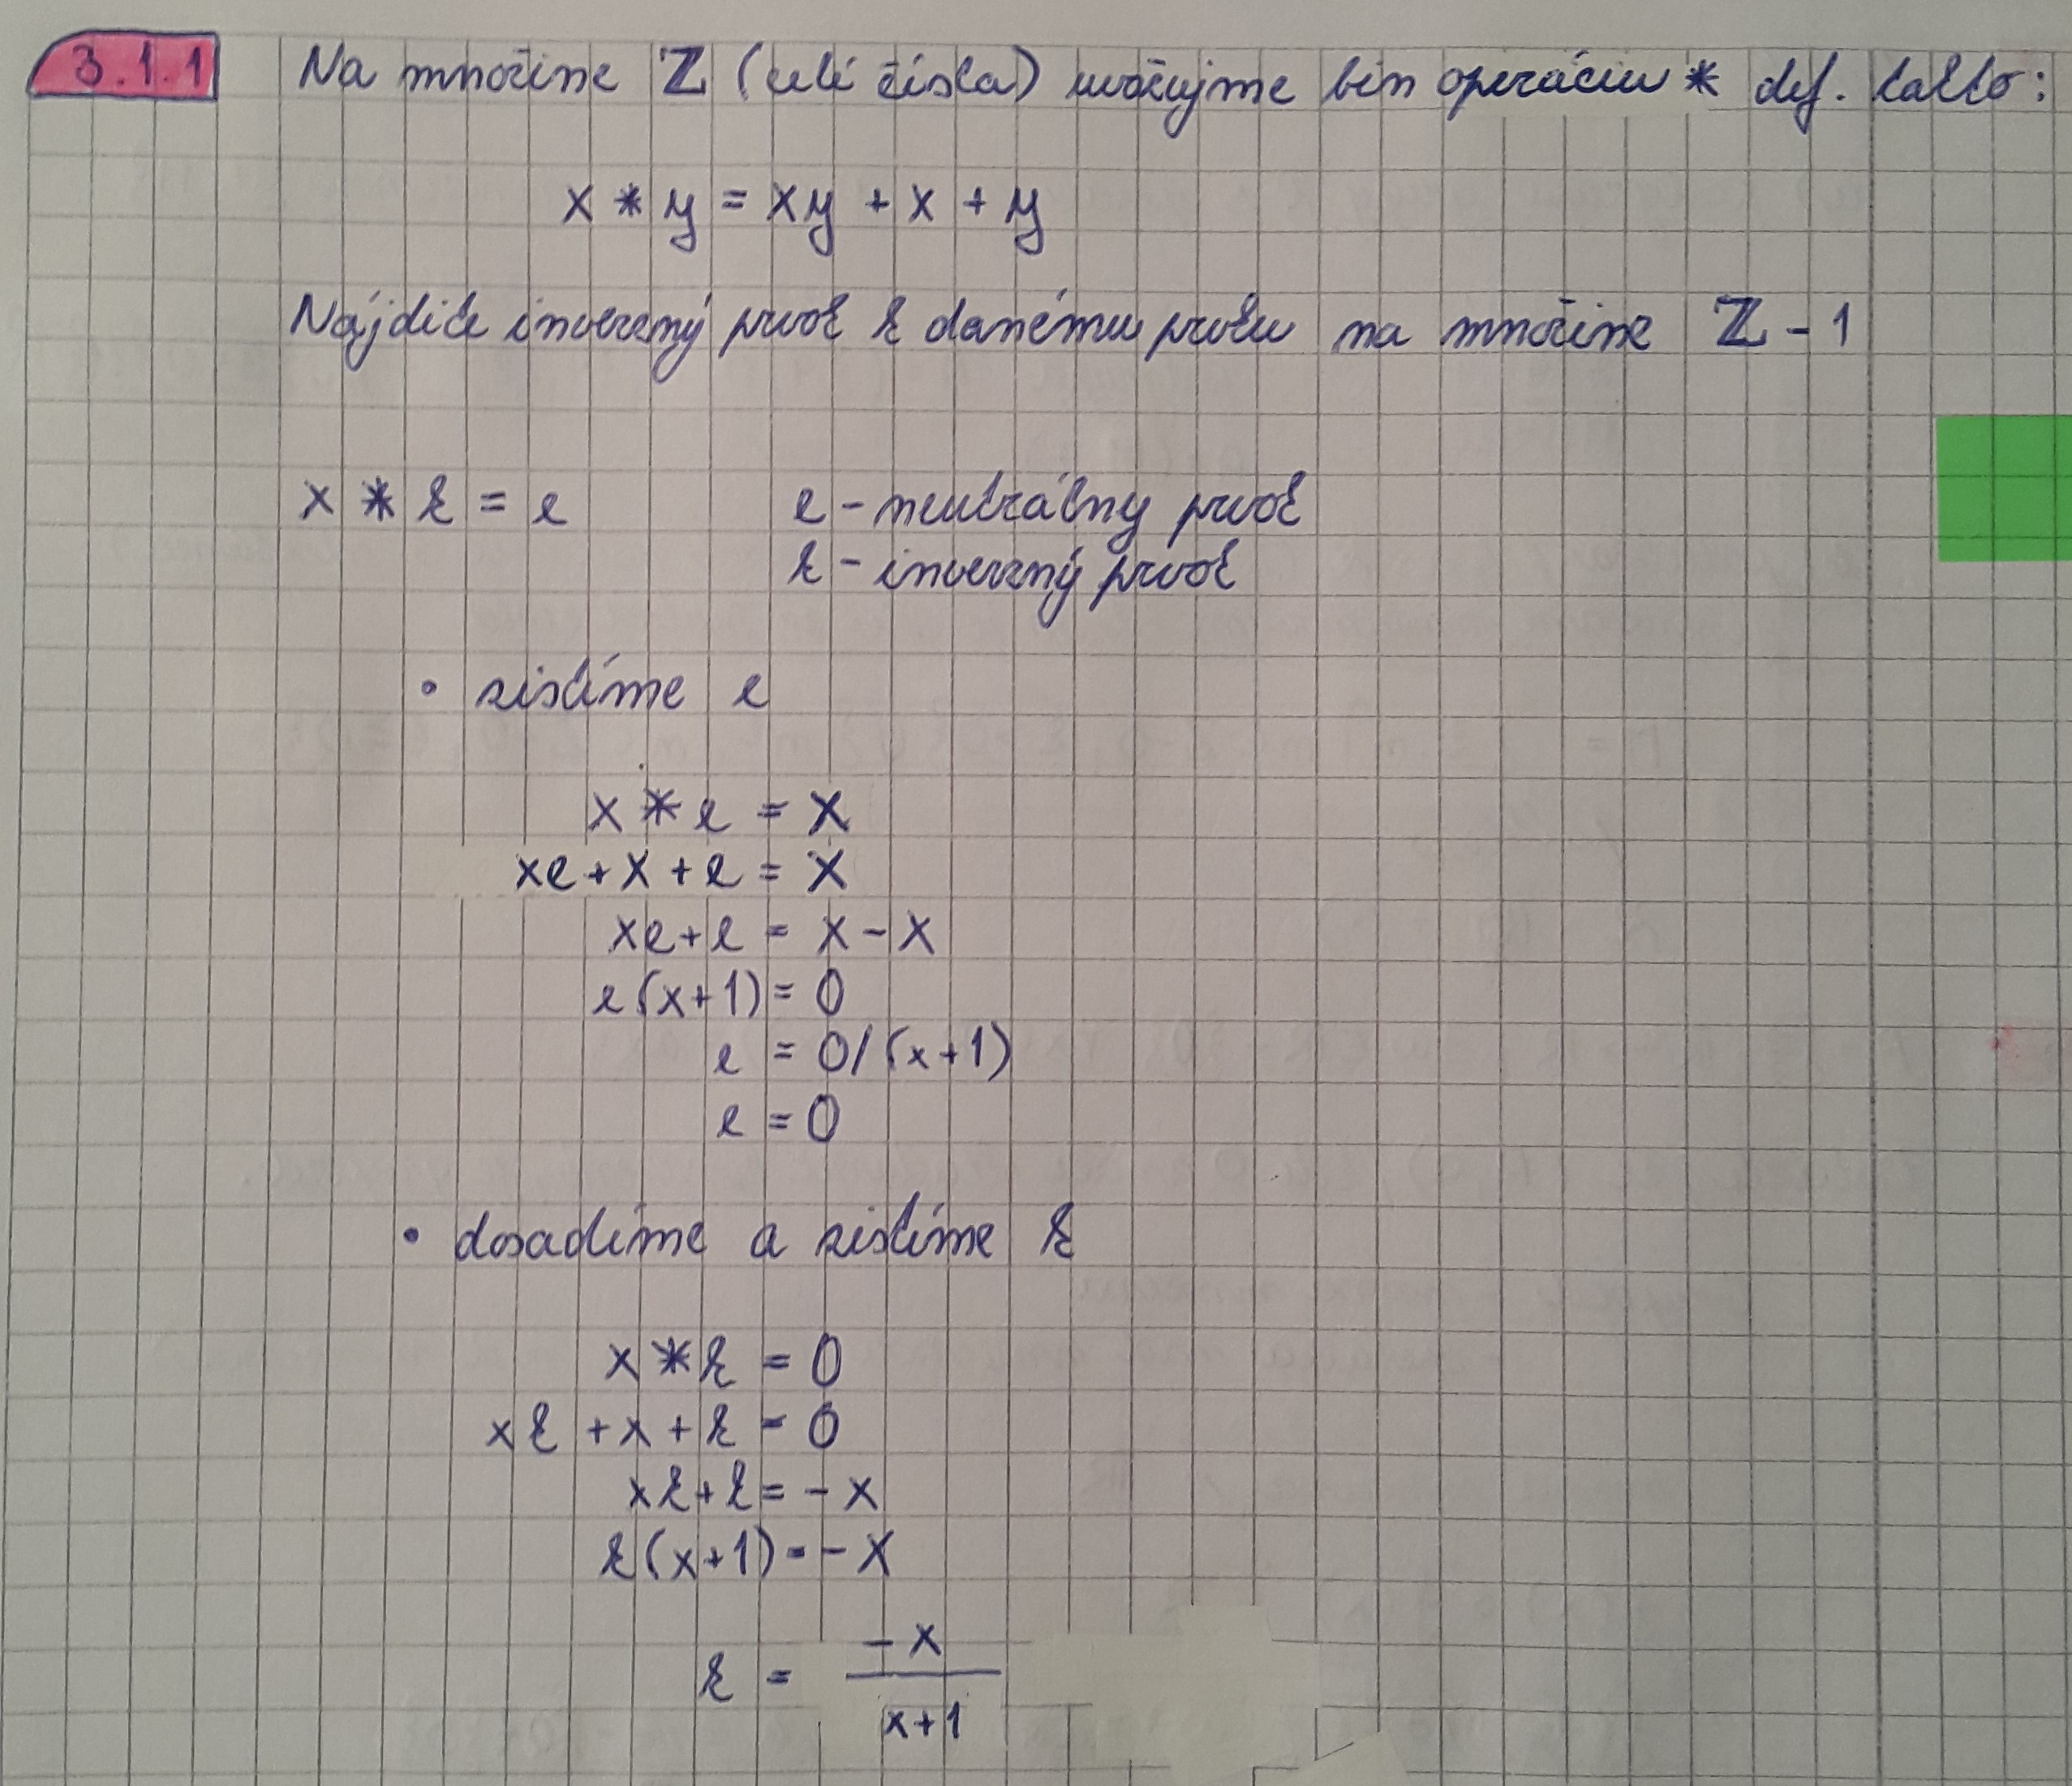 3.1.1 Na množine ℤ (celé čísla) uvažujme bin operáciu * def. takto:
x * y = xy + x + y
Nájdite inverzný prvok k danému prvku na množine ℤ - 1
x * k = e e - neutrálny prvok
k - inverzný prvok
• zistíme e
x * e = x
xe + x + e = x
xe + e = x - x
e(x+1) = 0
e = 0/(x+1)
e = 0
• dosadíme a zistíme k
x * k = 0
xk + x + k = 0
xk + k = - x
k(x+1) = - x
k = -x / x+1